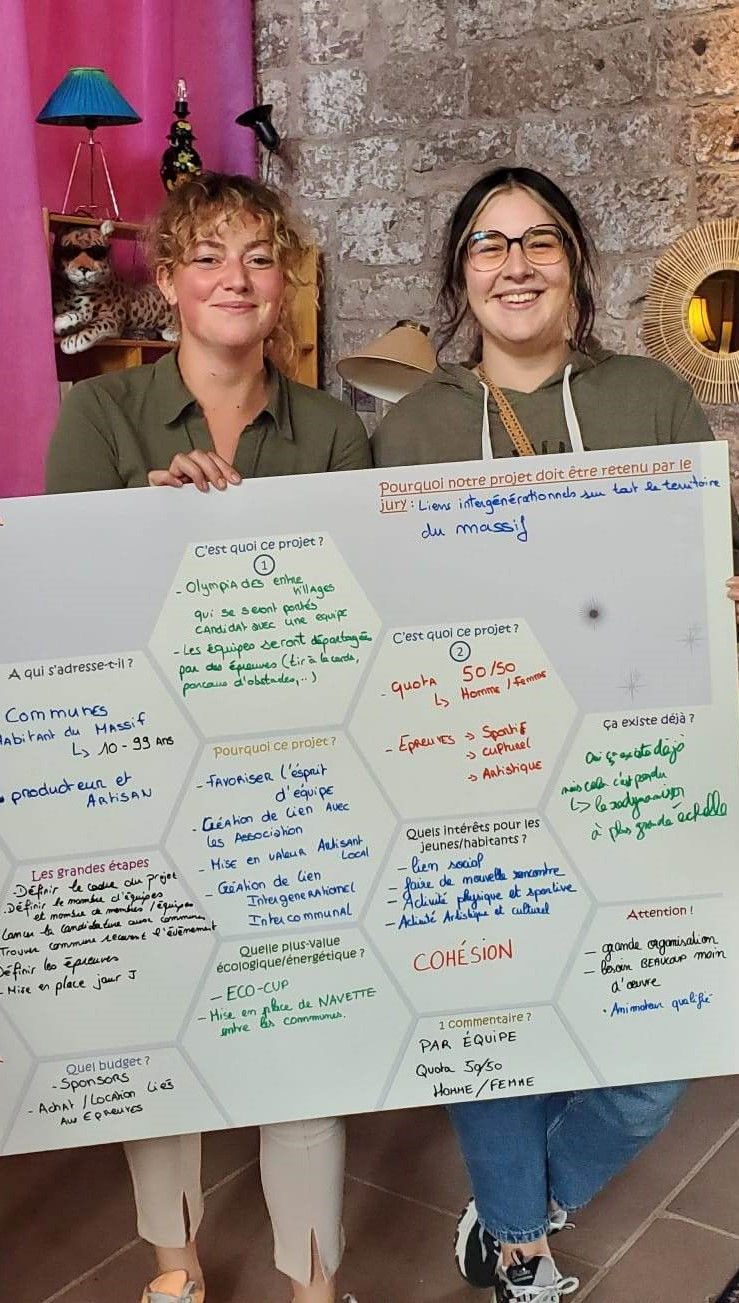 Pourquoi notre projet doit être retenu par le
jury : Liens intergénérationnels sur tout le territoire
du massif
C'est quoi ce projet ?
1
- Olympiades entre
villages
qui se seront portés
candidat avec une equipe
- Les équipes seront départagées
par des épreuves (tir à la corde,
parcours d'obstacles,..)
C'est quoi ce projet ?
2
- quota 50/50
↳ Homme / femme
- Epreuves → Sportif
→ culturel
→ Artistique
A qui s'adresse-t-il ?
Communes
Habitant du Massif
↳ 10 - 99 Ans
• producteur et
Artisan
Pourquoi ce projet ?
- Favoriser l'ésprit
d'équipe
- Création de lien Avec
les Association
- Mise en valeur Artisant
Local
- Création de lien
Intergenerationel
Intercommunal
Ça existe déjà ?
Oui ça existe déjà
mais cela c'est perdu
↳ le redynamiser
à plus grande échelle
Les grandes étapes
- Définir le cadre du projet
- Définir le nombre d'équipes
et nombre de membres / équipes
Lancer la candidature aux communes
Trouver commune recevant l'évènement
Définir les épreuves
- Mise en place jour J
Quels intérêts pour les
jeunes/habitants ?
- lien social
- faire de nouvelle rencontre
- Activité physique et sportive
- Activité Artistique et culturel
COHÉSION
Quelle plus-value
écologique/énergétique ?
- ECO-CUP
- Mise en place de NAVETTE
entre les communes.
Attention !
- grande organisation
- besoin BEAUCOUP main
d'œuvre
• Animateur qualifié
Quel budget ?
- Sponsors
- Achat / Location liés
Aux Epreuves
1 commentaire ?
PAR ÉQUIPE
Quota 50/50
HOMME / FEMME